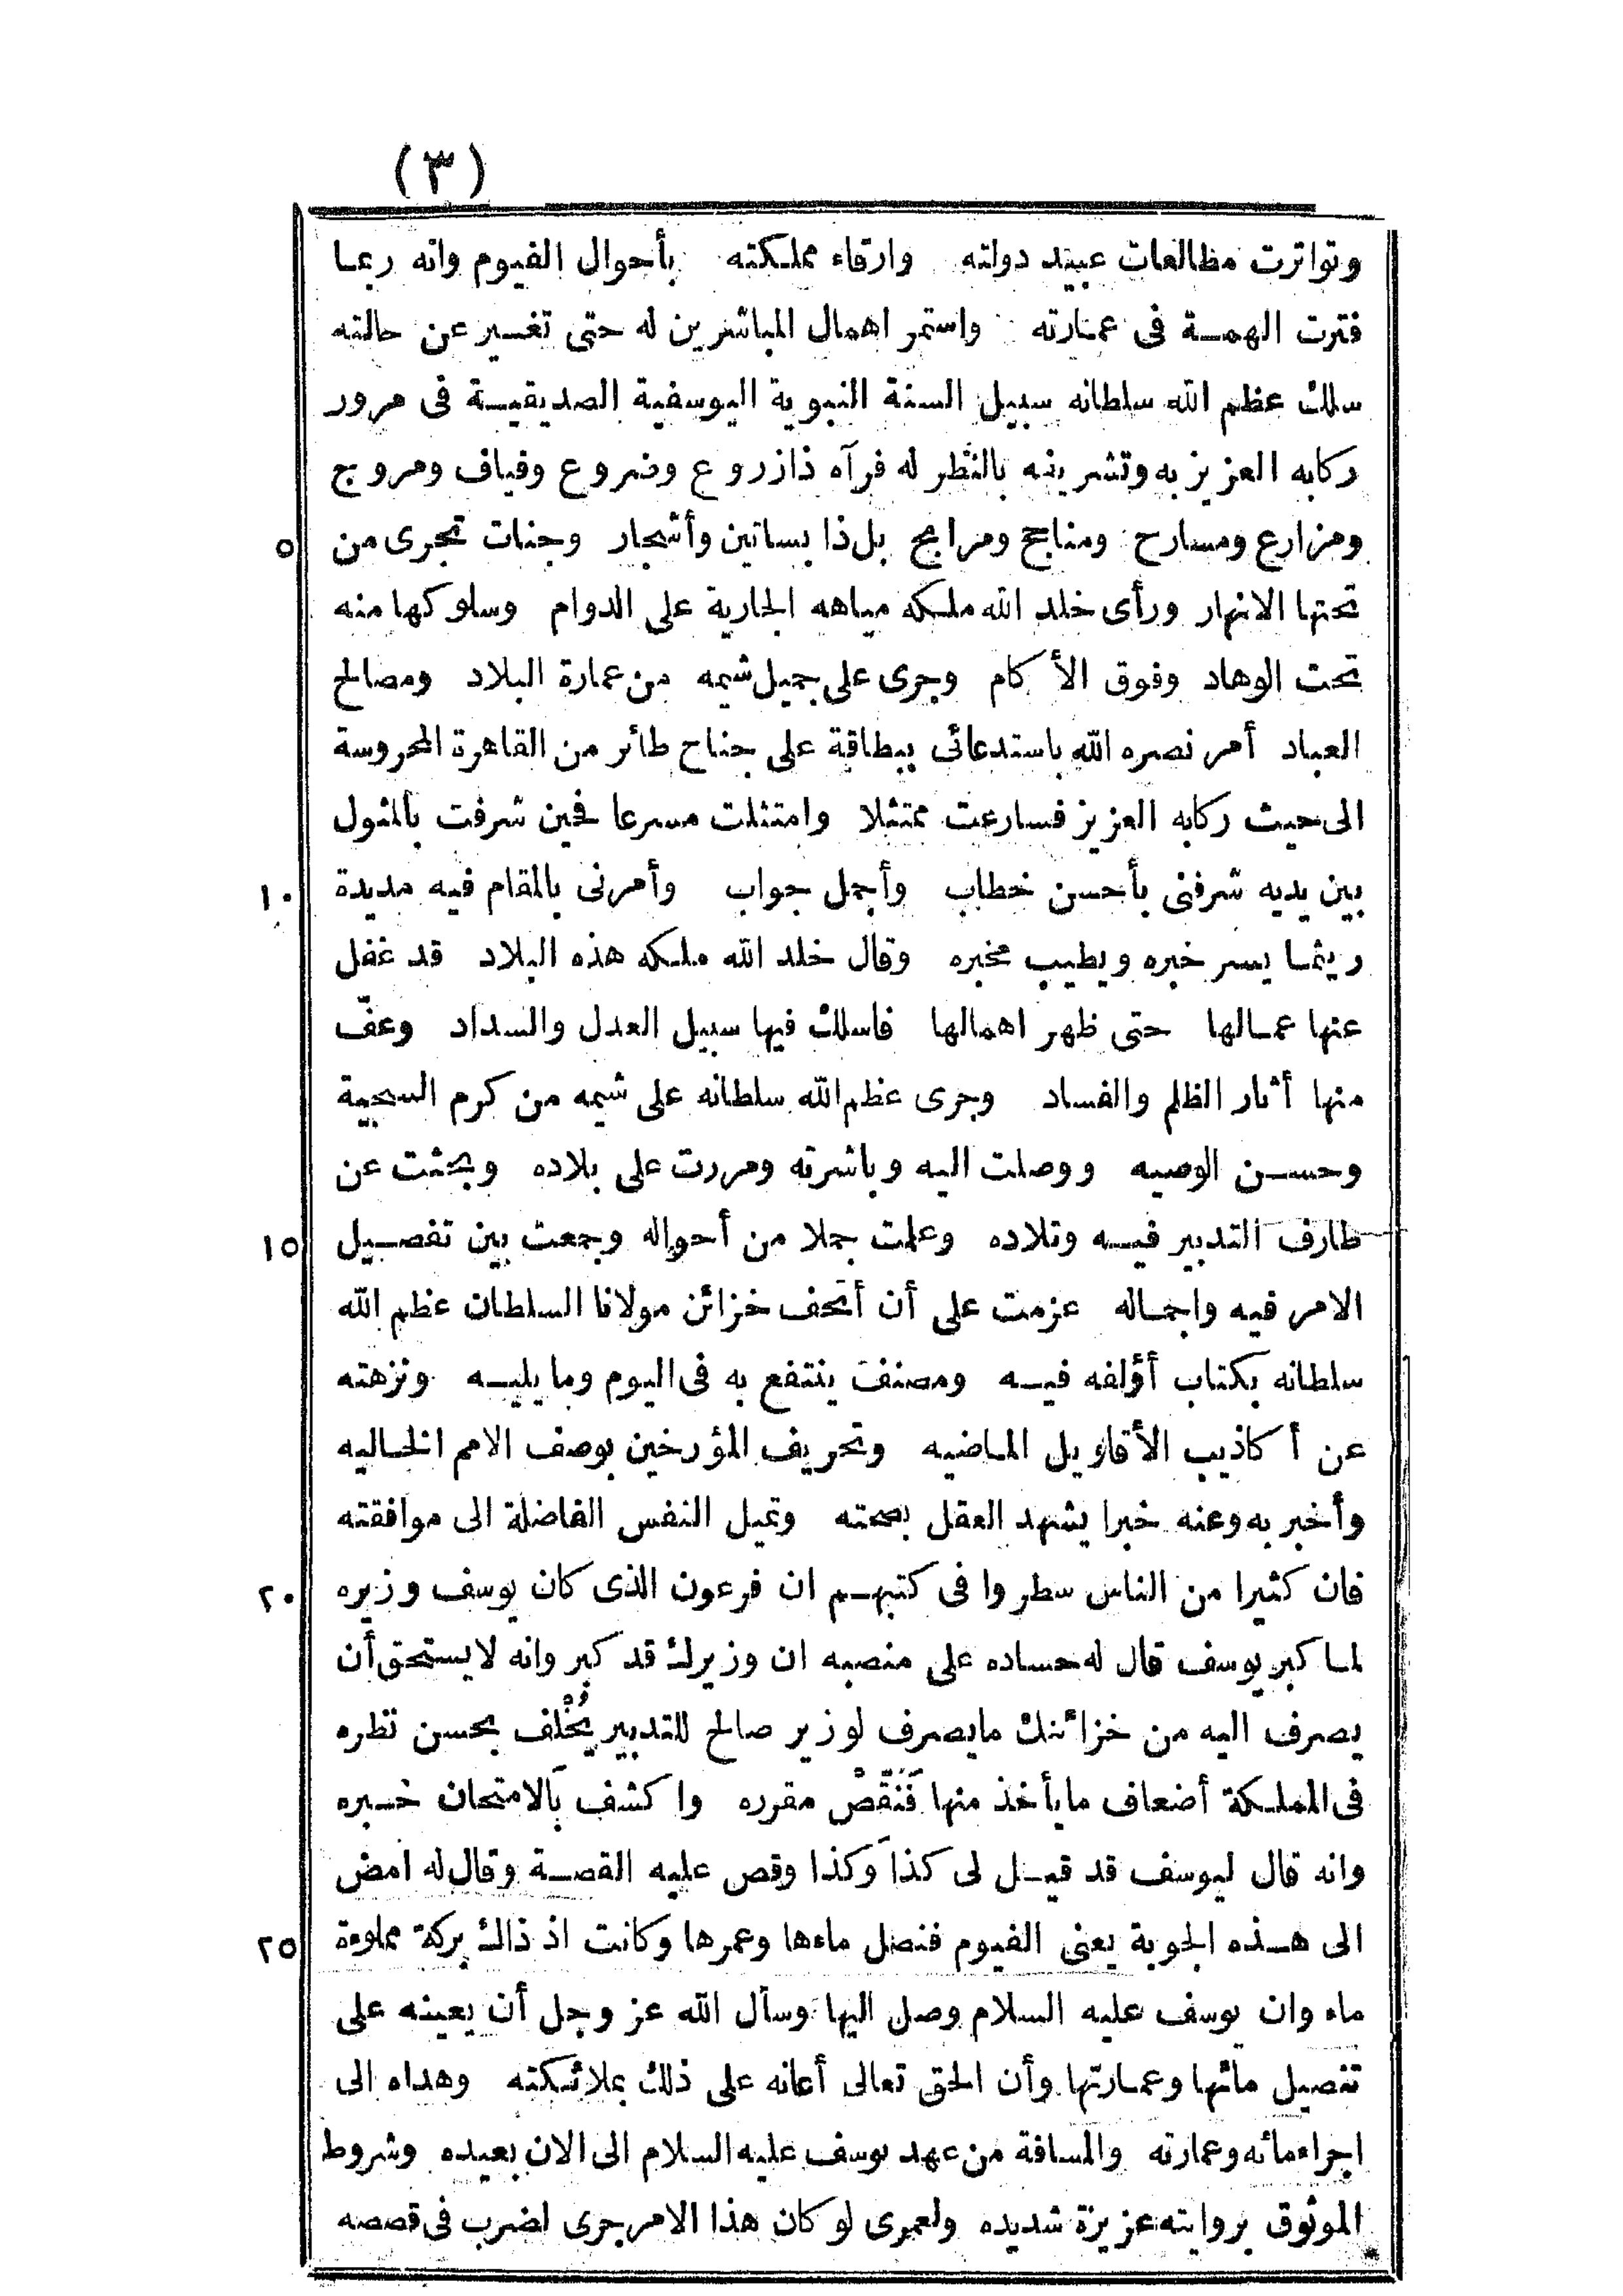 (٣)
وتواترت مطالعات عبيد دولته وارقاء مملكته بأحوال الفيوم وانه ربما
فترت الهمة فى عمارته واستمر اهمال المباشرين له حتى تغير عن حالته
سلك عظم الله سلطانه سبيل السنة النبوية اليوسفية الصديقية فى مرور
ركابه العزيز به وتشريفه بالنظر له فرآه ذا زروع وضروع وفياف ومروج
ومزارع ومسارح ومناجح ومرابح بل ذا بساتين وأشجار وجنات تجرى من
٥
تحتها الانهار ورأى خلد الله ملكه مياهه الجارية على الدوام وسلوكها منه
تحت الوهاد وفوق الأكام وجرى على جميل شيمه من عمارة البلاد ومصالح
العباد أمر نصره الله باستدعائى ببطاقة على جناح طائر من القاهرة المحروسة
الى حيث ركابه العزيز فسارعت ممتثلا وامتثلت مسرعا فحين شرفت بالمثول
بين يديه شرفنى بأحسن خطاب وأجمل جواب وأمرنى بالمقام فيه مديدة
١٠
ريثما يسر خبره ويطيب مخبره وقال خلد الله ملكه هذه البلاد قد غفل
عنها عمالها حتى ظهر اهمالها فاسلك فيها سبيل العدل والسداد وعفّ
منها أثار الظلم والفساد وجرى عظم الله سلطانه على شيمه من كرم السجية
وحسن الوصيه ووصلت اليه وباشرته ومررت على بلاده وبحثت عن
طارف التدبير فيه وتلاده وعلمت جملا من أحواله وجمعت بين تفصيل
١٥
الامر فيه واجماله عزمت على أن أتحف خزائن مولانا السلطان عظم الله
سلطانه بكتاب أؤلفه فيه ومصنف ينتفع به فى اليوم وما يليه ونزهته
عن أكاذيب الأقاويل الماضيه وتحريف المؤرخين بوصف الامم الخاليه
وأخبر به وعنه خبرا يشهد العقل بصحته وتميل النفس الفاضلة الى موافقته
فان كثيرا من الناس سطروا فى كتبهم ان فرعون الذى كان يوسف وزيره
٢٠
لما كبر يوسف قال له حساده على منصبه ان وزيرك قد كبر وانه لا يستحق أن
يصرف اليه من خزائنك ما يصرف لوزير صالح للتدبير يُخْلف بحسن نظره
فى المملكة أضعاف ما يأخذ منها فَنَقّصْ مقرره واكشف بالامتحان خبره
وانه قال ليوسف قد قيل لى كذا وكذا وقص عليه القصة وقال له امض
الى هذه الجوبة يعنى الفيوم فنصل ماءها وعمرها وكانت اذ ذاك بركة مملوءة
٢٥
ماء وان يوسف عليه السلام وصل اليها وسأل الله عز وجل أن يعينه على
تنصيل مائها وعمارتها وأن الحق تعالى أعانه على ذلك بملائكته وهداه الى
اجراء مائه وعمارته والمسافة من عهد يوسف عليه السلام الى الان بعيده وشروط
الموثوق بروايته عزيزة شديده ولعمرى لو كان هذا الامر جرى لضرب فى قصصه